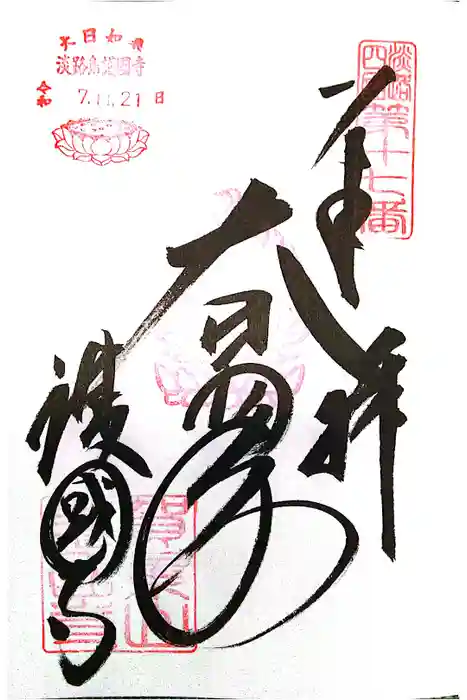 淡路四国
第十七番
奉拝
大日如来
護國寺
日如
淡路島護國寺
令和 7.11.21日